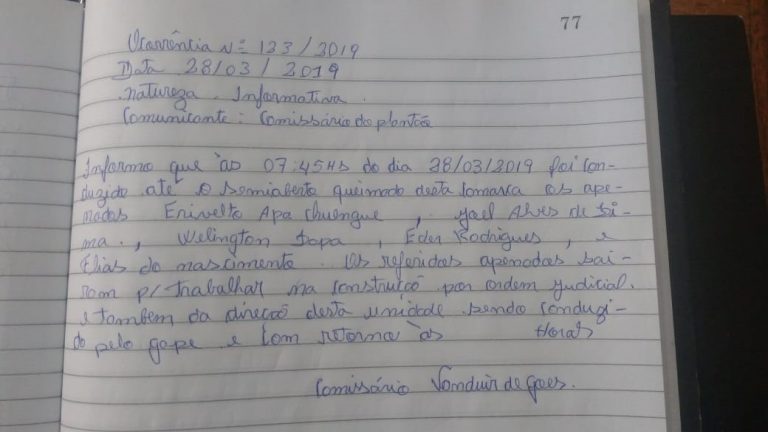 77
Ocorrência Nº 123/2019
Data 28/03/2019
Natureza. Informativa.
Comunicante: Comissário do plantão
Informo que às 07:45Hs do dia 28/03/2019 foi con-
duzido até o semiaberto queimado desta comarca os ape-
nados Erivelto Apa Chuengue, Jael Alves de Li-
ma., Welington Dapa, Eder Rodrigues, e
Elias do nascimento. Os referidos apenados sai-
ram p/ trabalhar na construção por ordem judicial.
e também da direção desta unidade sendo conduzi-
do pelo gape e com retorno às Horas
Comissário Vonduir de Goes.